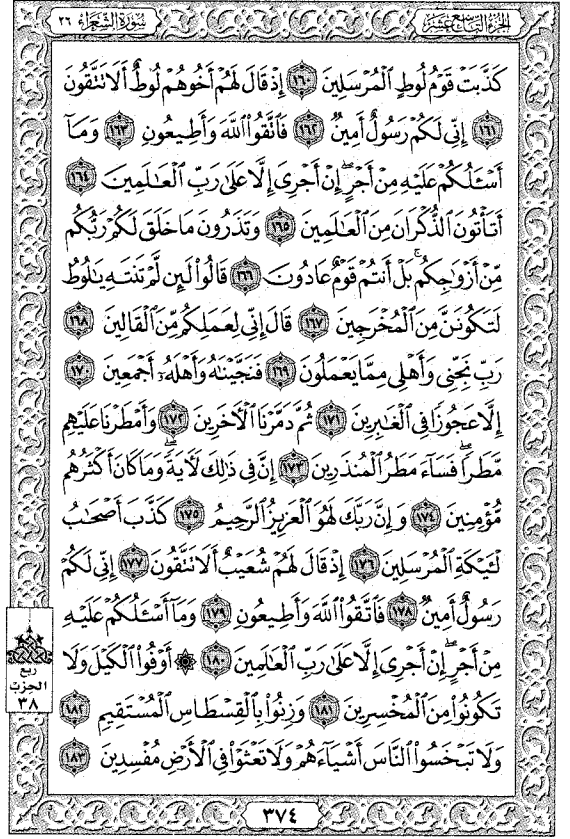 سُورَةُ الشُّعَرَاءِ ٢٦
الجُزْءُ التَّاسِعُ عَشَرَ
كَذَّبَتْ قَوْمُ لُوطٍ ٱلْمُرْسَلِينَ ١٦٠ إِذْ قَالَ لَهُمْ أَخُوهُمْ لُوطٌ أَلَا تَتَّقُونَ
١٦١ إِنِّى لَكُمْ رَسُولٌ أَمِينٌ ١٦٢ فَٱتَّقُوا۟ ٱللَّهَ وَأَطِيعُونِ ١٦٣ وَمَآ
أَسْـَٔلُكُمْ عَلَيْهِ مِنْ أَجْرٍ ۖ إِنْ أَجْرِىَ إِلَّا عَلَىٰ رَبِّ ٱلْعَـٰلَمِينَ ١٦٤
أَتَأْتُونَ ٱلذُّكْرَانَ مِنَ ٱلْعَـٰلَمِينَ ١٦٥ وَتَذَرُونَ مَا خَلَقَ لَكُمْ رَبُّكُم
مِّنْ أَزْوَٰجِكُم ۚ بَلْ أَنتُمْ قَوْمٌ عَادُونَ ١٦٦ قَالُوا۟ لَئِن لَّمْ تَنتَهِ يَـٰلُوطُ
لَتَكُونَنَّ مِنَ ٱلْمُخْرَجِينَ ١٦٧ قَالَ إِنِّى لِعَمَلِكُم مِّنَ ٱلْقَالِينَ ١٦٨
رَبِّ نَجِّنِى وَأَهْلِى مِمَّا يَعْمَلُونَ ١٦٩ فَنَجَّيْنَـٰهُ وَأَهْلَهُۥٓ أَجْمَعِينَ ١٧٠
إِلَّا عَجُوزًا فِى ٱلْغَـٰبِرِينَ ١٧١ ثُمَّ دَمَّرْنَا ٱلْـَٔاخَرِينَ ١٧٢ وَأَمْطَرْنَا عَلَيْهِم
مَّطَرًا ۖ فَسَآءَ مَطَرُ ٱلْمُنذَرِينَ ١٧٣ إِنَّ فِى ذَٰلِكَ لَـَٔايَةً ۖ وَمَا كَانَ أَكْثَرُهُم
مُّؤْمِنِينَ ١٧٤ وَإِنَّ رَبَّكَ لَهُوَ ٱلْعَزِيزُ ٱلرَّحِيمُ ١٧٥ كَذَّبَ أَصْحَـٰبُ
لْـَٔيْكَةِ ٱلْمُرْسَلِينَ ١٧٦ إِذْ قَالَ لَهُمْ شُعَيْبٌ أَلَا تَتَّقُونَ ١٧٧ إِنِّى لَكُمْ
رَسُولٌ أَمِينٌ ١٧٨ فَٱتَّقُوا۟ ٱللَّهَ وَأَطِيعُونِ ١٧٩ وَمَآ أَسْـَٔلُكُمْ عَلَيْهِ
مِنْ أَجْرٍ ۖ إِنْ أَجْرِىَ إِلَّا عَلَىٰ رَبِّ ٱلْعَـٰلَمِينَ ١٨٠ ۞ أَوْفُوا۟ ٱلْكَيْلَ وَلَا
تَكُونُوا۟ مِنَ ٱلْمُخْسِرِينَ ١٨١ وَزِنُوا۟ بِٱلْقِسْطَاسِ ٱلْمُسْتَقِيمِ ١٨٢
وَلَا تَبْخَسُوا۟ ٱلنَّاسَ أَشْيَآءَهُمْ وَلَا تَعْثَوْا۟ فِى ٱلْأَرْضِ مُفْسِدِينَ ١٨٣
ربع
الحزب
٣٨
٣٧٤